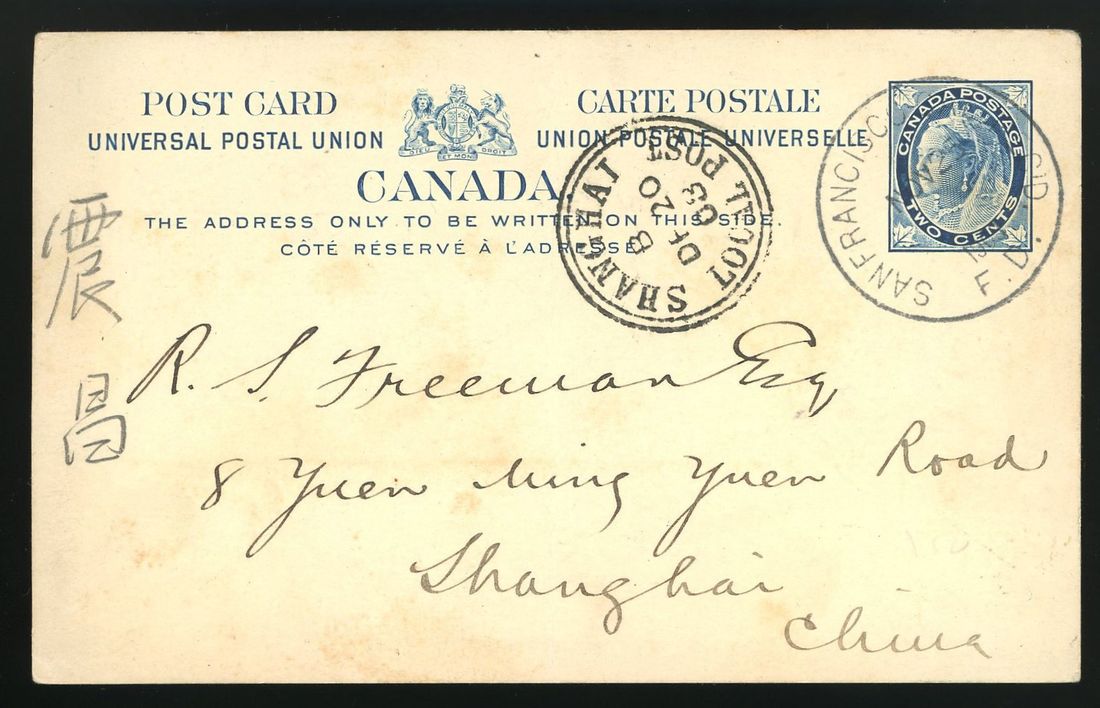 POST CARD
CARTE POSTALE
UNIVERSAL POSTAL UNION
UNION POSTALE UNIVERSELLE
DIEU ET MON DROIT
CANADA
THE ADDRESS ONLY TO BE WRITTEN ON THIS SIDE.
CÔTÉ RÉSERVÉ À L'ADRESSE
CANADA POSTAGE
TWO CENTS
SHANGHAI LOCAL POST
B
DE 20
03
SAN FRANCISCO
F. D.
震昌
R. S. Freeman Esq
8 Yuen Ming Yuen Road
Shanghai
China